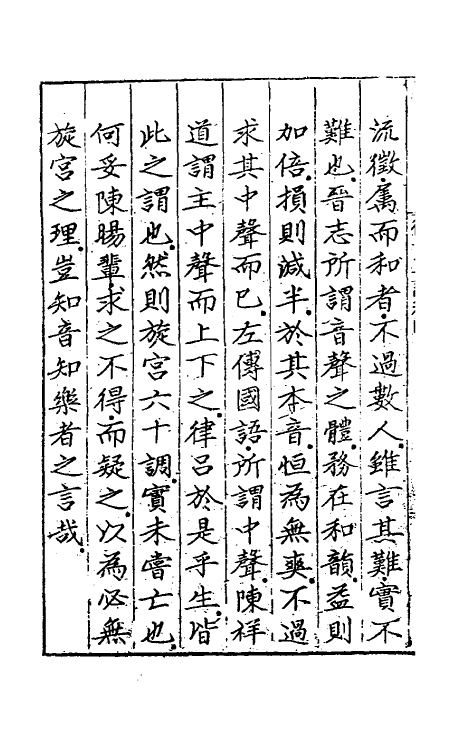 流徵屬而和者不過數人雖言其難實不
難也晉志所謂音聲之體務在和韻益則
加倍損則減半於其本音恒為無爽不過
求其中聲而已左傳國語所謂中聲陳祥
道謂主中聲而上下之律呂於是乎生皆
此之謂也然則旋宮六十調實未嘗亡也
何妥陳暘輩求之不得而疑之以為必無
旋宮之理豈知音知樂者之言哉